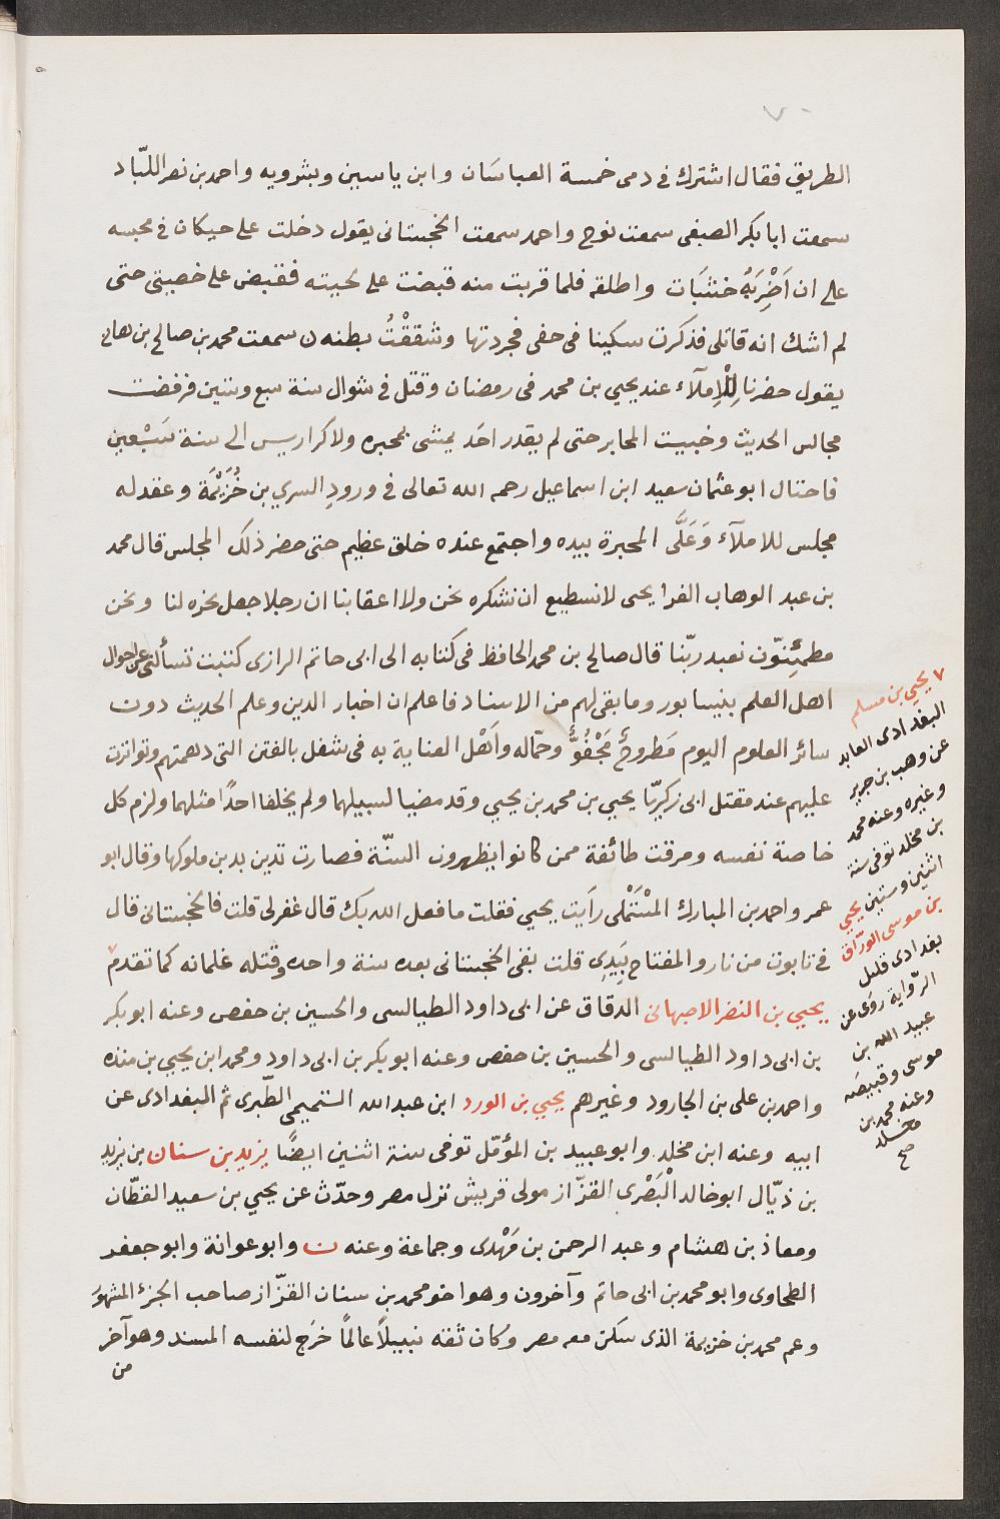 الطريق فقال اشترك في دمى خمسة العباسَان وابن ياسين وبشرويه واحمد بن نصر اللبّاد
سمعت ابا بكر الصبغى سمعت نوح واحمد سمعت الخجستانى يقول دخلت على حيكان في محبسه
على ان اَضْرِبَهُ خشبَات واطلقه فلما قربت منه قبضت على لحيته فقبض على خصيتى حتى
لم اشك انه قاتلى فذكرت سكينا فى خفى فجردتها وشققْتُ بطنه ن سمعت محمد بن صالح بن هانى
يقول حضرنا لِلْاِملآء عند يحيي بن محمد فى رمضان وقتل في شوال سنة سبع وستين فرفضت
مجالس الحديث وخبيت المحابر حتى لم يقدر احَد يمشى بمحبره ولا كراريس الى سنة سَبْعين
فاحتال ابو عثمان سعيد ابن اسماعيل رحمه الله تعالى في ورود السري بن خُزَيْمَة وعقد له
مجلس للاملآء وَعَلَّى المحبرة بيده واجتمع عنده خلق عظيم حتى حضر ذلك المجلس قال محمد
بن عبد الوهاب الفرا يحيى لا نسطيع ان نشكره نحن ولا اعقابنا ان رجلا جعل نحره لنا ونحن
مطمئِنوّن نعبد ربّنا قال صالح بن محمد الحافظ فى كتابه الى ابى حاتم الرازى كتبت تسألنى عن احوال
اهل العلم بنيسابور وما بقى لهم من الاسناد فاعلم ان اخبار الدين وعلم الحديث دون
سائر العلوم اليوم مَطروحٌ مَجْفُوٌّ وحمّاله واَهْل العناية به فى شغل بالفتن التى دهمتهم وتواترت
عليهم عند مقتل ابى زكريّا يحيي بن محمد بن يحيي وقد مضيا لسبيلهما ولم يخلفا احدًا مثلهما ولزم كل
خاصة نفسه ومرقت طائفة ممن كانوا يظهرون السنّة فصارت تدين بدين ملوكها وقال ابو
عمر واحمد بن المبارك المسْتَمْلى رأيت يحيي فقلت ما فعل الله بك قال غفر لى قلت فالخجستانى قال
فى تابوت من نار والمفتاح بِيَدِى قلت بقى الخجستانى بعده سنة واحده وقتله غلمانه كما تقدم ٧
يحيي بن النضر الاصبهانى الدقاق عن ابى داود الطيالسى والحسين بن حفص وعنه ابو بكر
بن ابى داود الطيالسى والحسين بن حفص وعنه ابو بكر بن ابى داود ومحمد ابن يحيي بن منده
واحمد بن على بن الجارود وغيرهم يحيي بن الورد ابن عبد الله التميمى الطّبرى ثم البغدادى عن
ابيه وعنه ابن مخلد وابو عبيد بن المؤمّل توفى سنة اثنين ايضًا يزيد بن سنان بن يزيد
بن ذيّال ابو خالد الْبَصْرى القزّاز مولى قريش نزل مصر وحدّث عن يحيي بن سعيد القطّان
ومعاذ بن هشام وعبد الرحمن بن مَهْدى وجماعة وعنه ن وابو عوانة وابو جعفر
الطحاوى وابو محمد بن ابى حاتم وآخرون وهو اخو محمد بن سنان القزّاز صاحب الجزء المشهوَر
وعم محمد بن خزيمة الذى سكن معه مصر وكان ثقه نبيلًا عالمًا خرَج لنفسه المسند وهو آخر
من
٧ يحيي بن مسلم
البغدادى العابد
عن وهب بن جرير
وغيره وعنه محمد
بن مخلد توفى سنة
اثنين وستين يحيي
بن موسى الورّاق
بغدادى قليل
الرّواية روى عن
عبيد الله بن
موسى وقبيصَه
وعنه محمد بن
مخلد
صح